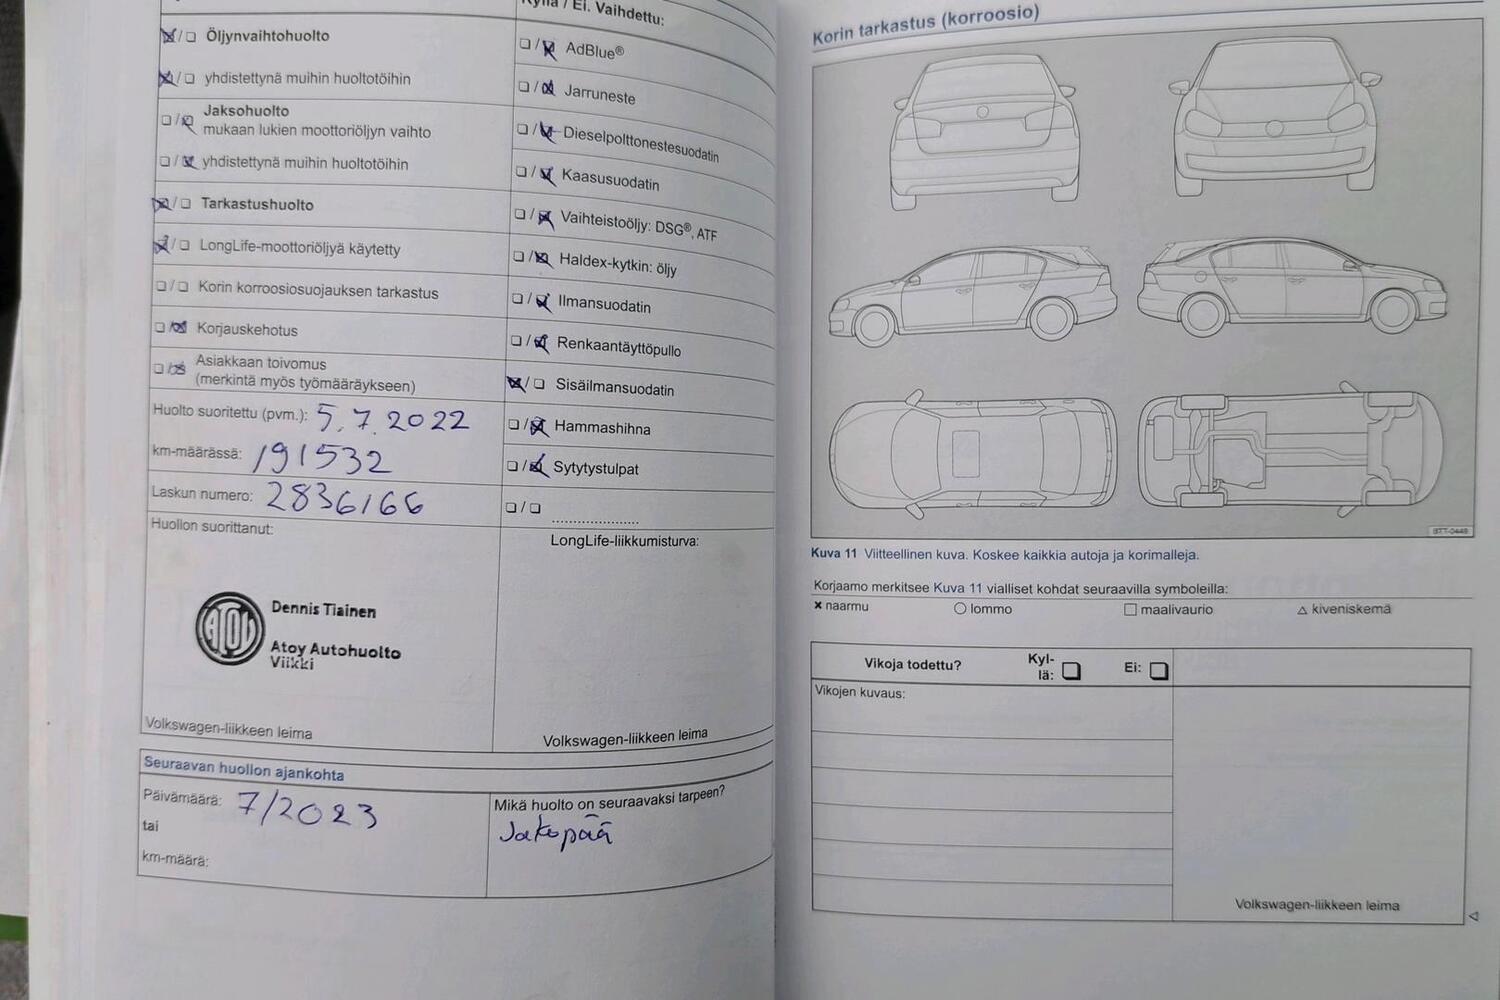 Kyllä / Ei. Vaihdettu:
Öljynvaihtohuolto
yhdistettynä muihin huoltotöihin
Jaksohuolto
mukaan lukien moottoriöljyn vaihto
yhdistettynä muihin huoltotöihin
Tarkastushuolto
LongLife-moottoriöljyä käytetty
Korin korroosiosuojauksen tarkastus
Korjauskehotus
Asiakkaan toivomus
(merkintä myös työmääräykseen)
Huolto suoritettu (pvm.): 5.7.2022
km-määrässä: 191532
Laskun numero: 2836166
Huollon suorittanut:
Dennis Tiainen
ATOY
Atoy Autohuolto
Viikki
Volkswagen-liikkeen leima
AdBlue®
Jarruneste
Dieselpolttonestesuodatin
Kaasusuodatin
Vaihteistoöljy: DSG®, ATF
Haldex-kytkin: öljy
Ilmansuodatin
Renkaantäyttöpullo
Sisäilmansuodatin
Hammashihna
Sytytystulpat
LongLife-liikkumisturva:
Volkswagen-liikkeen leima
Seuraavan huollon ajankohta
Päivämäärä: 7/2023
tai
km-määrä:
Mikä huolto on seuraavaksi tarpeen?
Jakopää
Korin tarkastus (korroosio)
BTT-0449
Kuva 11 Viitteellinen kuva. Koskee kaikkia autoja ja korimalleja.
Korjaamo merkitsee Kuva 11 vialliset kohdat seuraavilla symboleilla:
× naarmu ○ lommo □ maalivaurio △ kiveniskemä
Vikoja todettu? Kyl-
lä: Ei:
Vikojen kuvaus:
Volkswagen-liikkeen leima